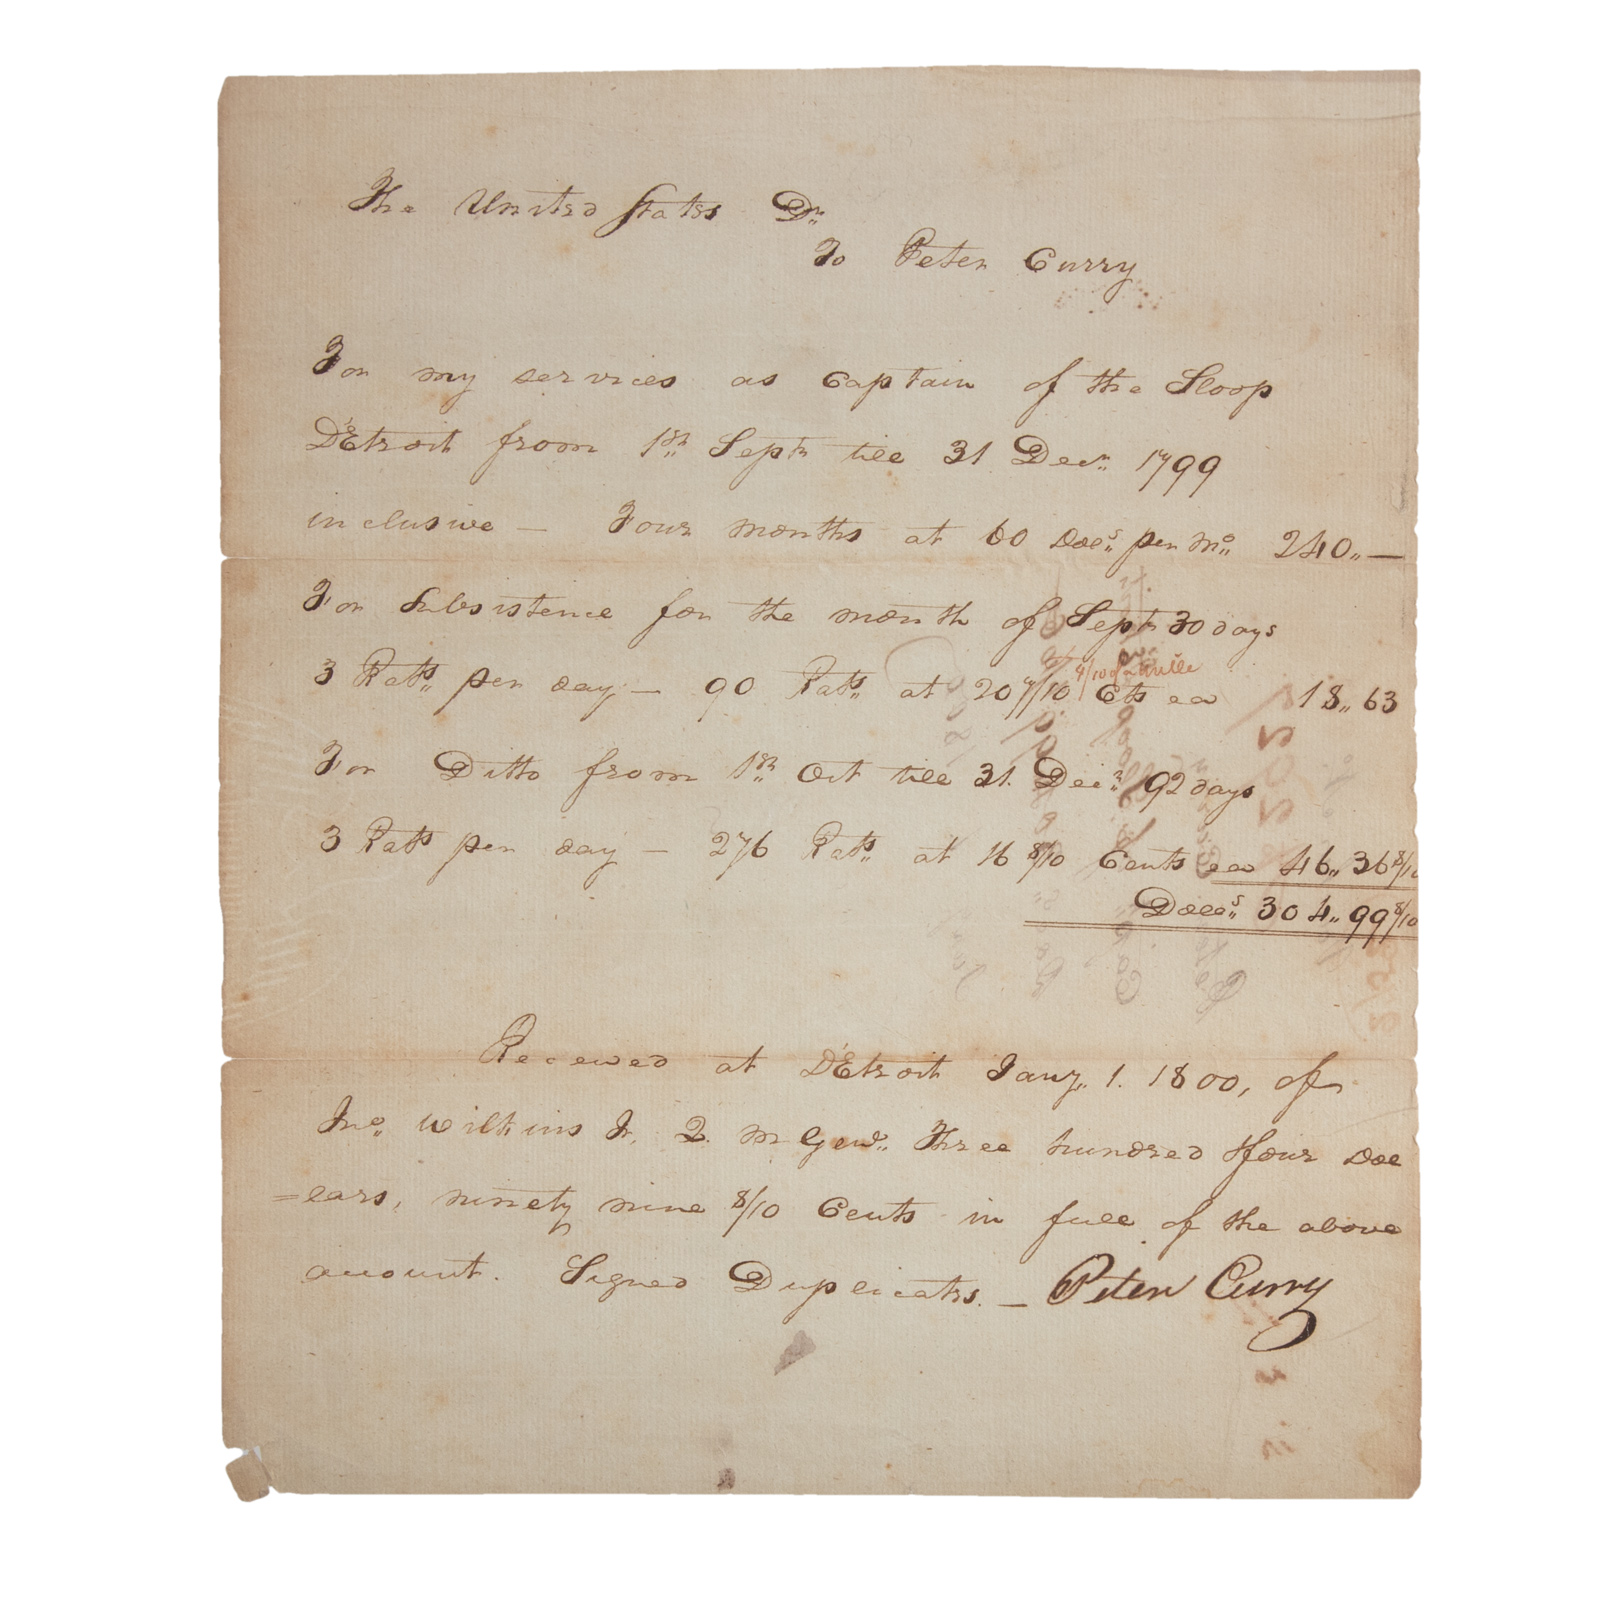 The United States Dr.
To Peter Curry
For my services as Captain of the Sloop
D'Etroit from 1st Septr till 31 Decr. 1799
inclusive — Four months at 60 Dolls. per Mo. 240,,—
For Subsistence for the month of Septr 30 days
4/10 of a Mille
3 Rats. per day — 90 Rats. at 20 7/10 Cts ea 18,,63
For Ditto from 1st Oct till 31. Decr. 92 days
3 Rats per day — 276 Rats. at 16 8/10 Cents ea 46,,36 8/10
Dolls. 304,,99 8/10
Received at D'Etroit Jany. 1. 1800, of
Jno. Wilkins Jr. Q. M Genl. Three hundred & four Dol
=lars, ninety nine 8/10 Cents in full of the above
account. Signed Duplicates. — Peter Curry